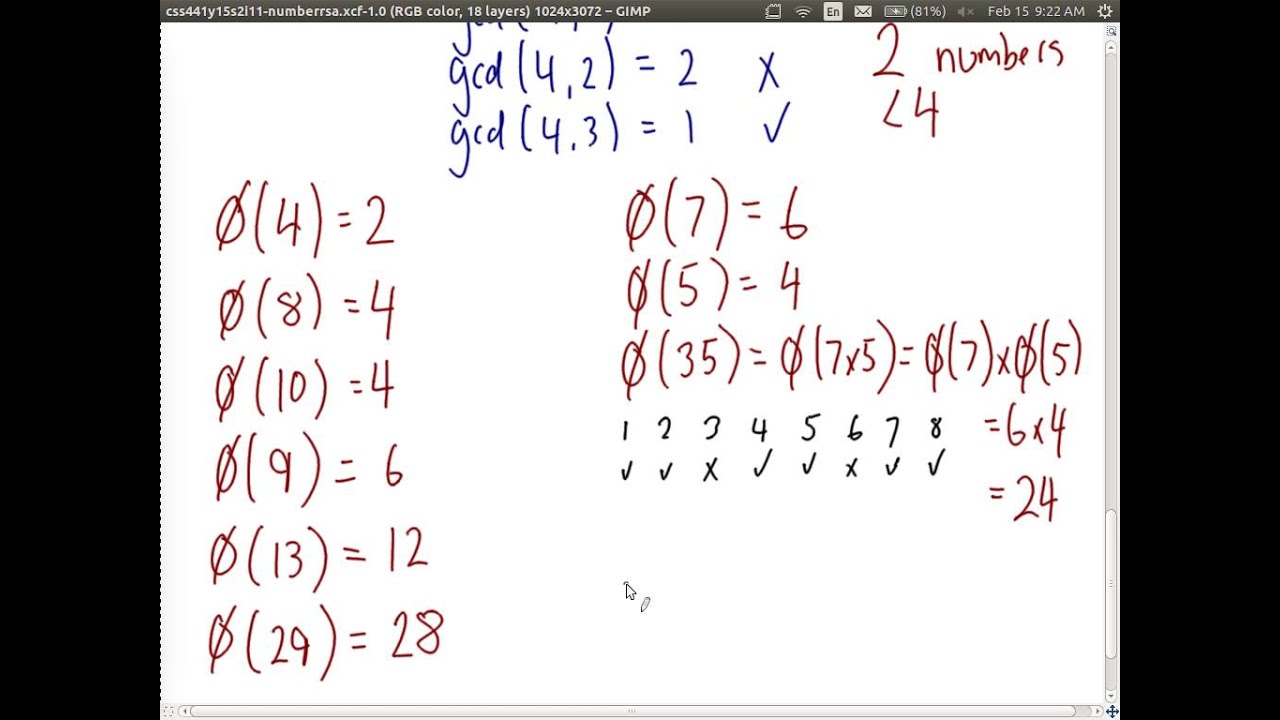 css441y15s2i11-numberrsa.xcf-1.0 (RGB color, 18 layers) 1024x3072 – GIMP En (81%) Feb 15 9:22 AM
gcd(4,2) = 2 x
gcd(4,3) = 1 ✓
2 numbers
<4
ϕ(4) = 2
ϕ(8) = 4
ϕ(10) = 4
ϕ(9) = 6
ϕ(13) = 12
ϕ(29) = 28
ϕ(7) = 6
ϕ(5) = 4
ϕ(35) = ϕ(7x5) = ϕ(7)xϕ(5)
= 6x4
= 24
1 2 3 4 5 6 7 8
✓ ✓ x ✓ ✓ x ✓ ✓